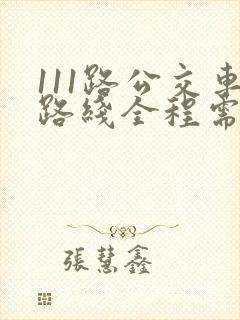 111路公交車
路綫全程需
張慧鑫